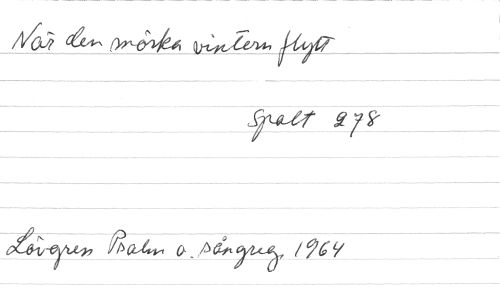 När den mörka vintern flytt
spalt 278
Lövgren Psalm o. sångreg. 1964